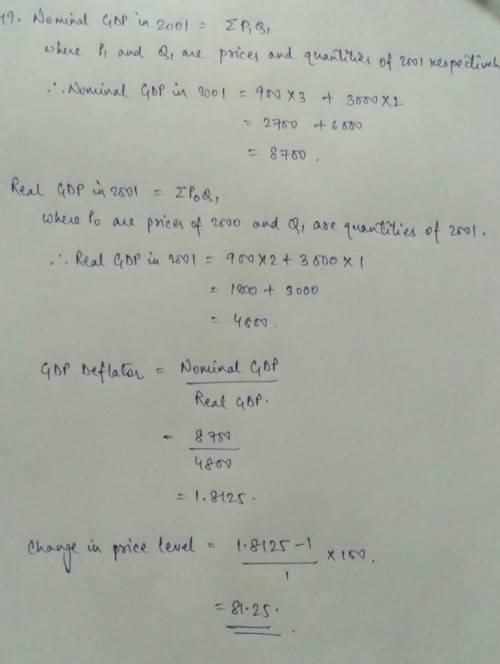 49. Nominal GDP in 2001 = ΣP₁Q₁
where P₁ and Q₁ are prices and quantities of 2001 respectively
∴ Nominal GDP in 2001 = 900 × 3 + 3000 × 2
= 2700 + 6000
= 8700.
Real GDP in 2001 = ΣP₀Q₁
where P₀ are prices of 2000 and Q₁ are quantities of 2001.
∴ Real GDP in 2001 = 900 × 2 + 3000 × 1
= 1800 + 3000
= 4800.
GDP Deflator = Nominal GDP
Real GDP.
= 8700
4800
= 1.8125.
Change in price level = 1.8125 - 1
1
× 100.
= 81.25.